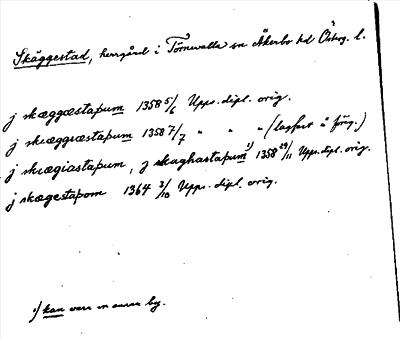 Skäggestad, herrgård i Törnevalla sn Åkerbo hd Östrg. l.
j skæggæstaþum 1358 5/6 Upps. dipl. orig.
j skæggræstaþum 1358 7/7 " " " (lagfart å föreg.)
j skæggiastaþum, j skaghastaþum¹⁾ 1358 29/11 Upps. dipl. orig.
j skægestaþom 1364 3/10 Upps. dipl. orig.
¹⁾ kan vara en annan by.